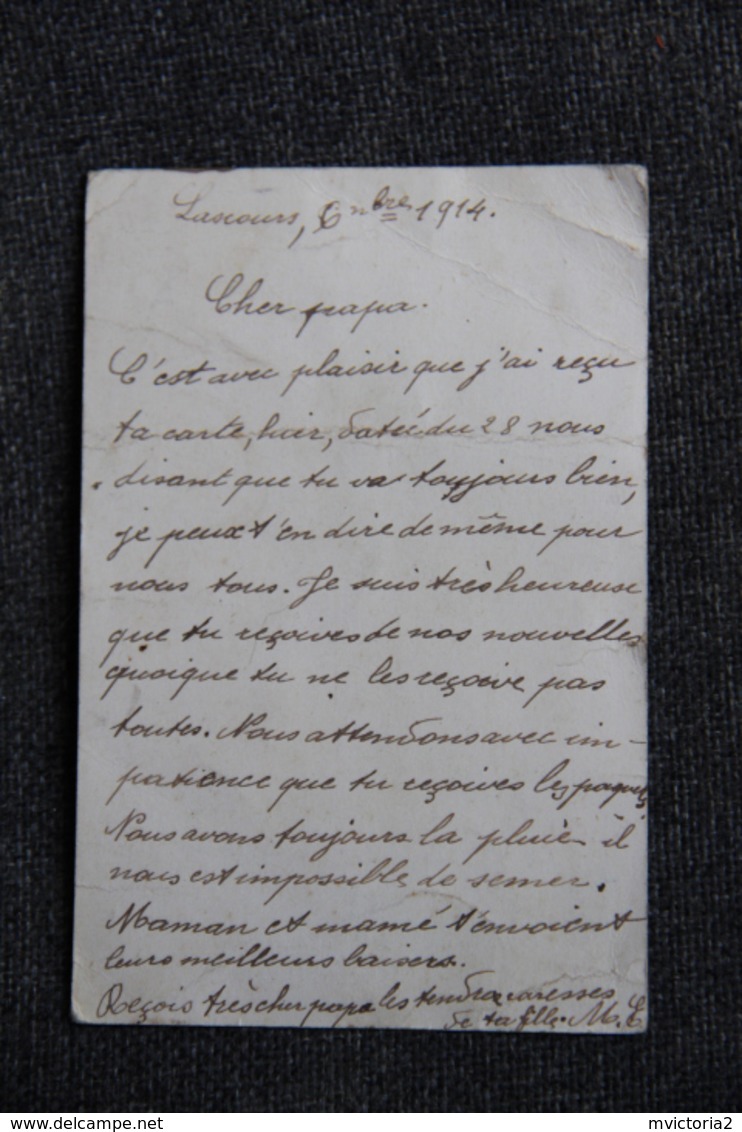 Lascours, 6 nbre 1914.
Cher papa.
C'est avec plaisir que j'ai reçu
ta carte, hier, datée du 28 nous
disant que tu vas toujours bien,
je peux t'en dire de même pour
nous tous. Je suis très heureuse
que tu reçoives de nos nouvelles
quoique tu ne les reçoive pas
toutes. Nous attendons avec im-
patience que tu reçoives les paquets
Nous avons toujours la pluie il
nous est impossible de semer.
Maman et mamé t'envoient
leurs meilleurs baisers.
Reçois très cher papa les tendres caresses
de ta fille. M. C
delcampe.net
mvictoria2